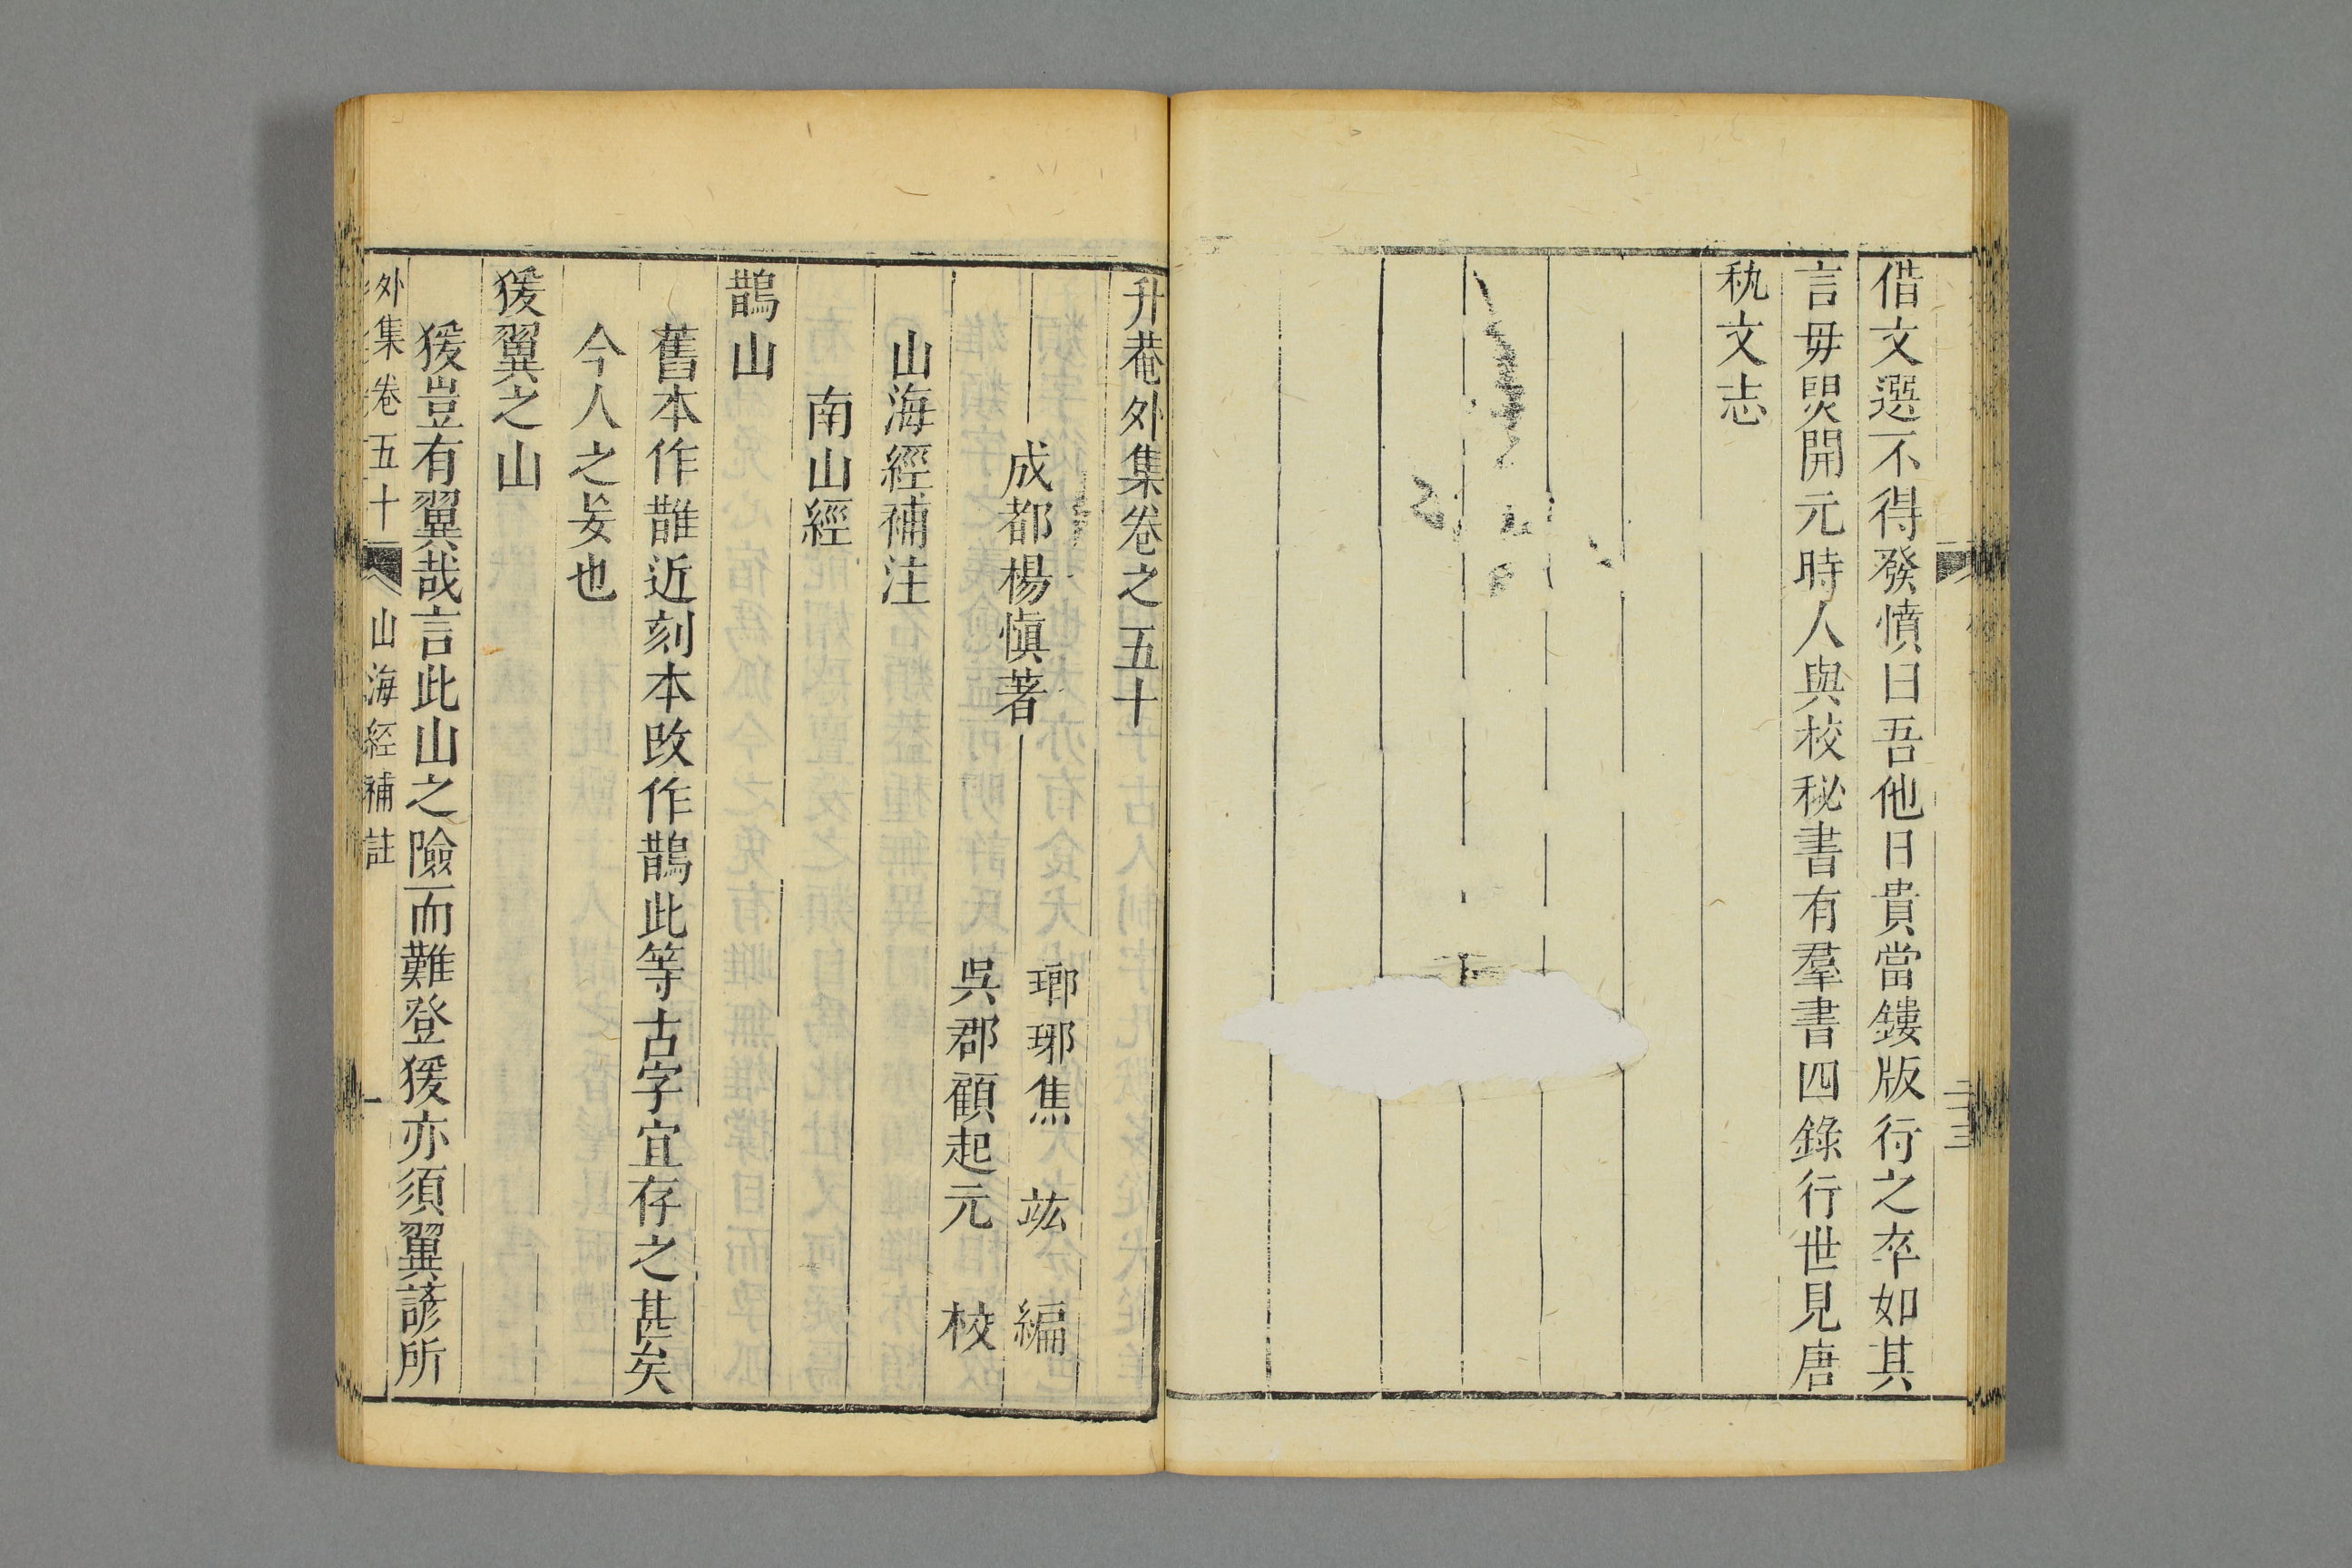 借文選不得發憤曰吾他日貴當鏤版行之卒如其
言毋煚開元時人與校秘書有羣書四錄行世見唐
秇文志
升菴外集卷之五十
成都楊愼著
瑯琊焦竑編
吳郡顧起元校
山海經補注
南山經
鵲山
舊本作䧿近刻本改作鵲此等古字宜存之甚矣
今人之妄也
猨翼之山
猨豈有翼哉言此山之險而難登猨亦須翼諺所
外集卷五十
山海經補註
一